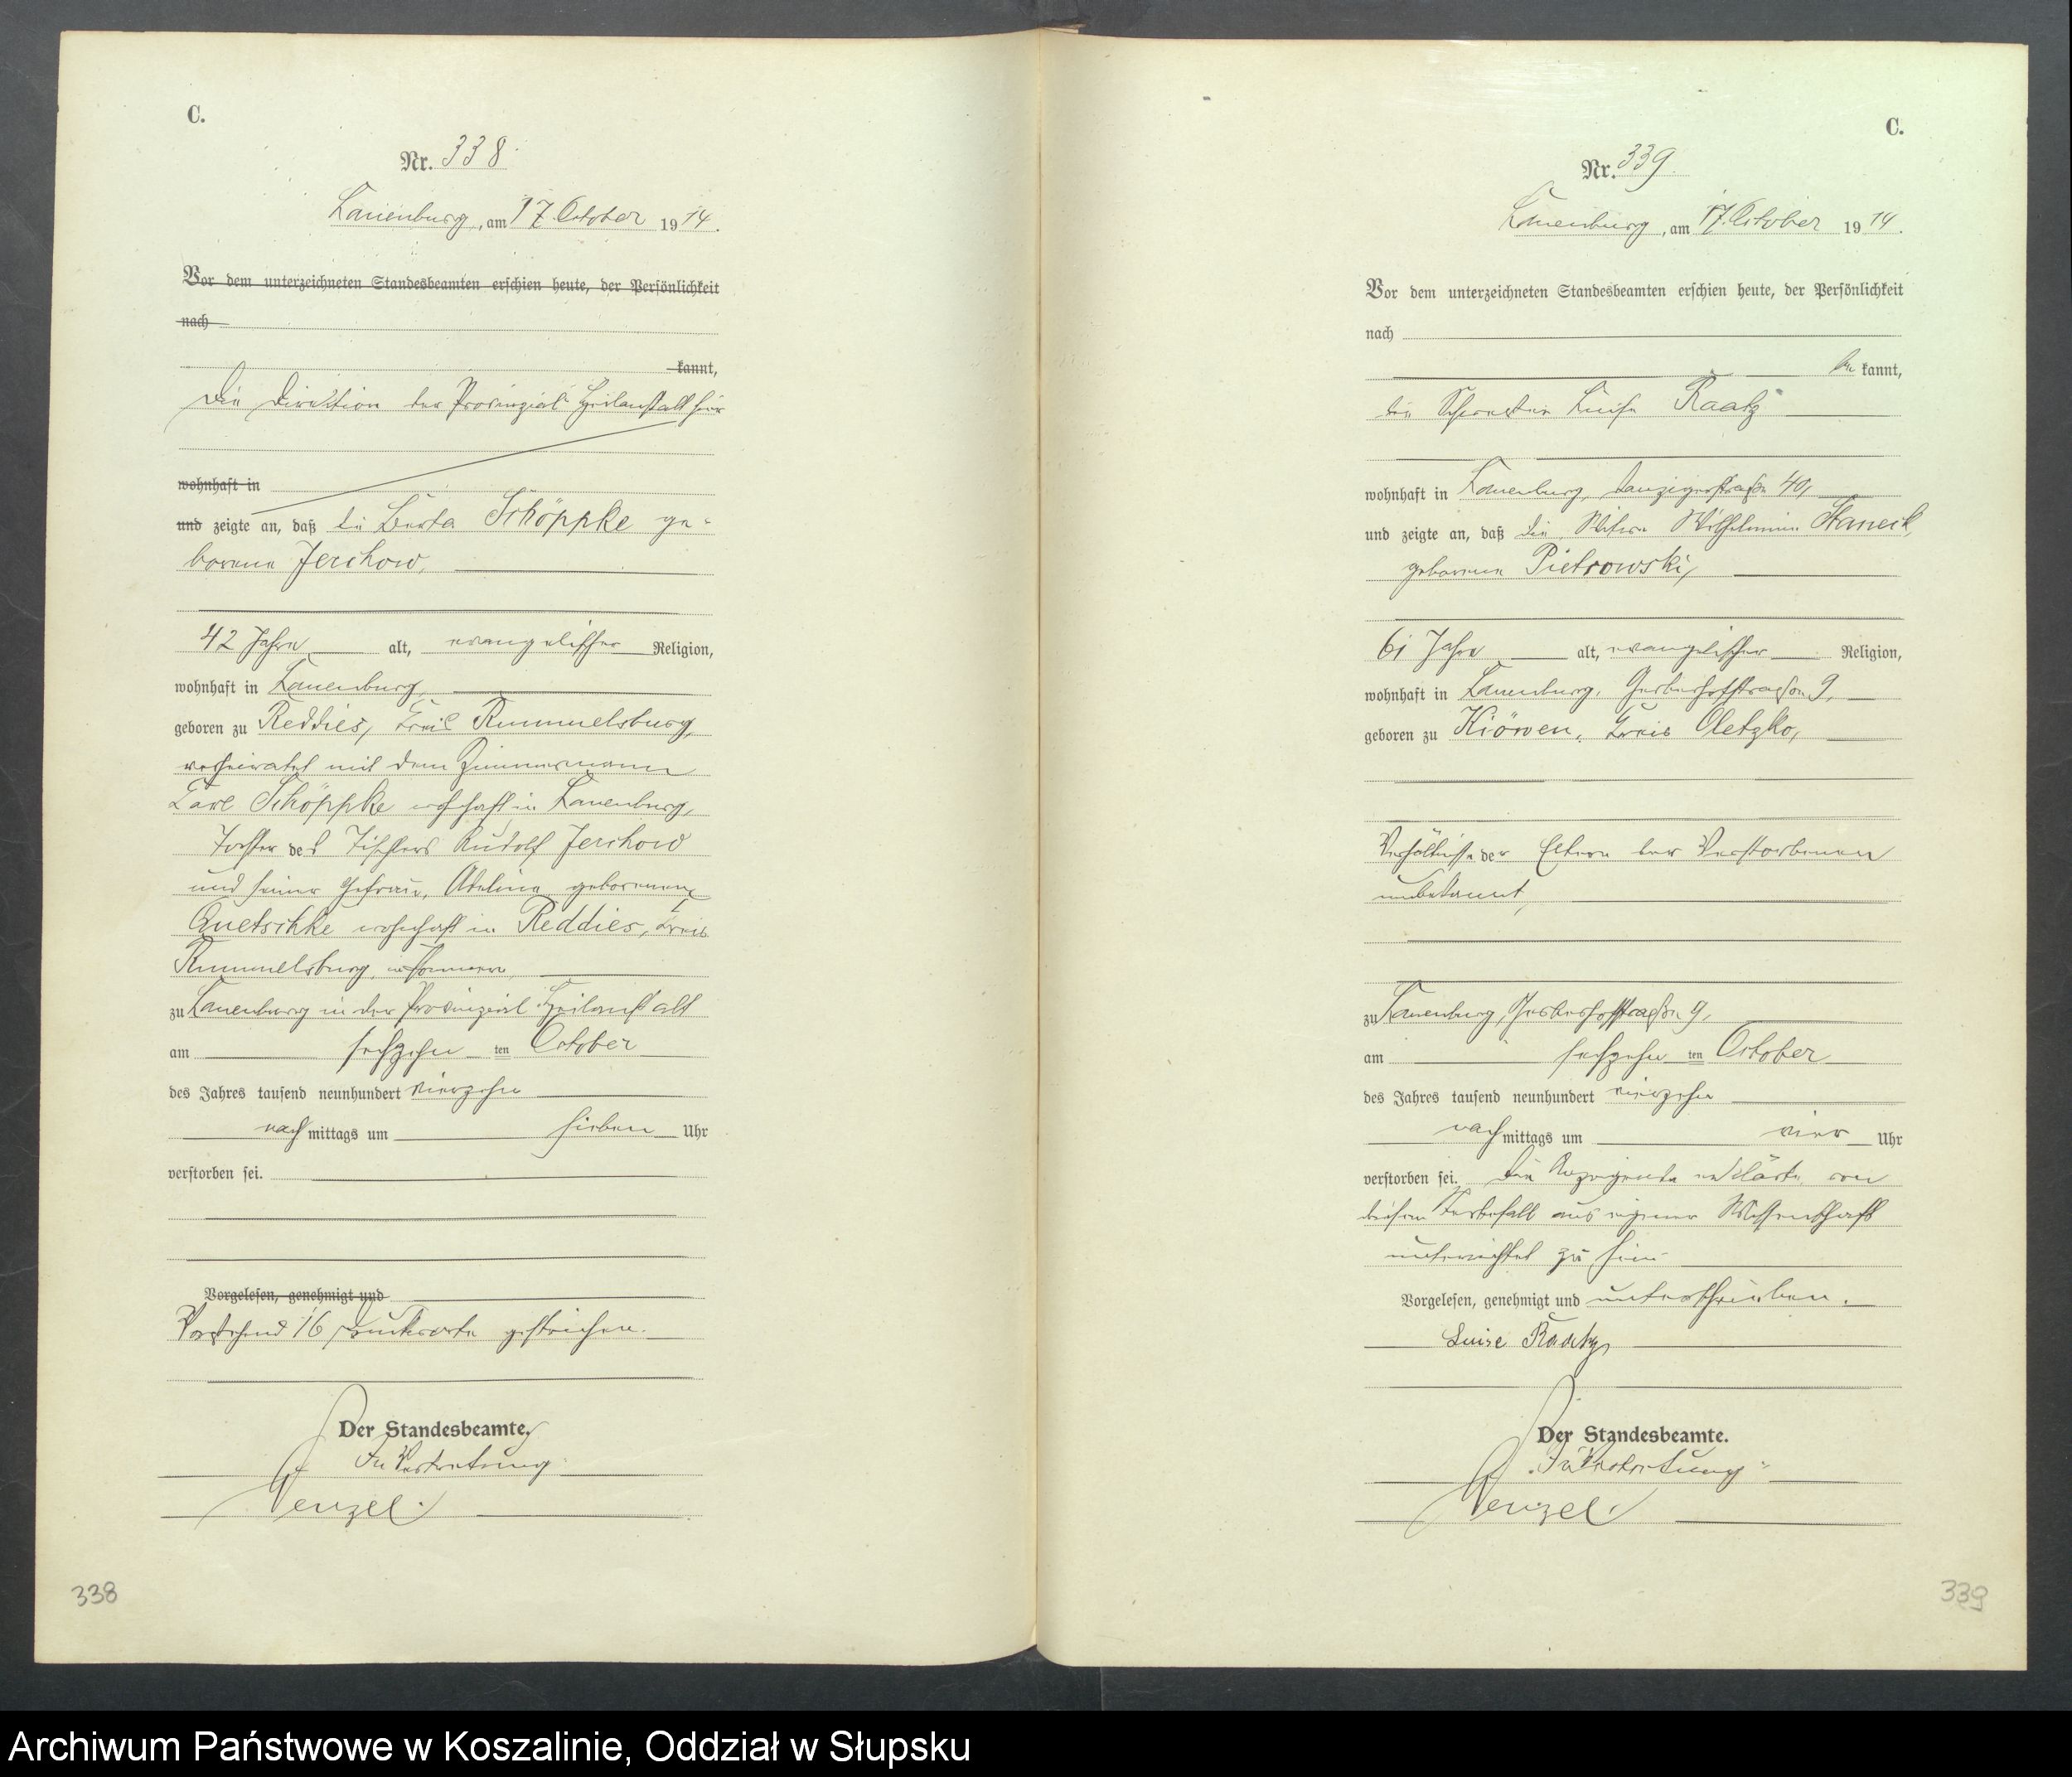 C.
Nr. 338
Lauenburg, am 17. October 1914.
Vor dem unterzeichneten Standesbeamten erschien heute, der Persönlichkeit
nach
kannt,
Die Direktion der Provinzial Heilanstalt hier
wohnhaft in
und zeigte an, daß die Berta Schöppke ge-
borene Jerchow,
42 Jahre alt, evangelischer Religion,
wohnhaft in Lauenburg,
geboren zu Reddies, Kreis Rummelsburg,
verheiratet mit dem Zimmermann
Carl Schöppke wohnhaft in Lauenburg,
Tochter des Tischlers Rudolf Jerchow
und seiner Ehefrau, Abeline geborenen
Quetschke wohnhaft in Reddies, Kreis
Rummelsburg, in Pommern,
zu Lauenburg in der Provinzial Heilanstalt
am sechzehnten October
des Jahres tausend neunhundert vierzehn
nachmittags um sieben Uhr
verstorben sei.
Vorgelesen, genehmigt und
Vorstehend 16 Druckworte gestrichen.
Der Standesbeamte.
In Vertretung
Wenzel.
338
C.
Nr. 339.
Lauenburg, am 17. October 1914.
Vor dem unterzeichneten Standesbeamten erschien heute, der Persönlichkeit
nach
be kannt,
die Schwester Luise Raatz
wohnhaft in Lauenburg, Danzigerstraße 40,
und zeigte an, daß die Witwe Wilhelmine Staneck,
geborene Pietrowski,
61 Jahre alt, evangelischer Religion,
wohnhaft in Lauenburg, Gerberhofstraße 9,
geboren zu Kiöwen, Kreis Oletzko,
Verhältnisse der Eltern der Verstorbenen
unbekannt,
zu Lauenburg, Gerberhofstraße 9,
am sechzehnten October
des Jahres tausend neunhundert vierzehn
nachmittags um vier Uhr
verstorben sei. Die Anzeigende erklärte, von
diesem Sterbefall aus eigener Wissenschaft
unterrichtet zu sein.
Vorgelesen, genehmigt und unterschrieben.
Luise Raatz,
Der Standesbeamte.
In Vertretung
Wenzel.
339
Archiwum Państwowe w Koszalinie, Oddział w Słupsku